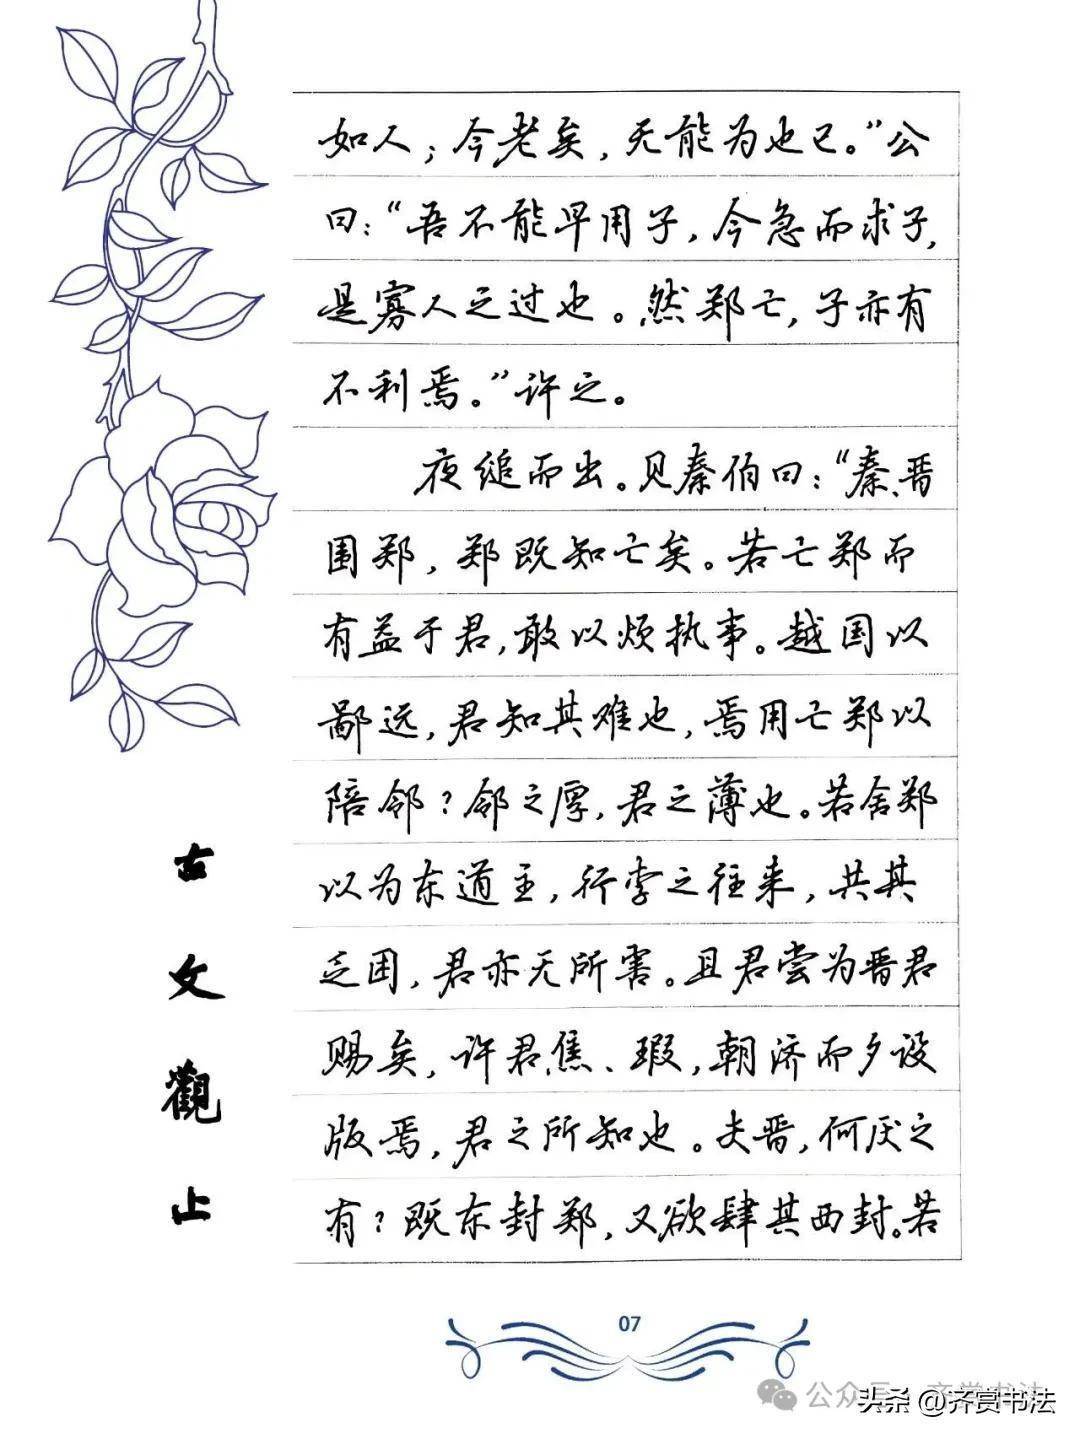 如人；今老矣，无能为也已。”公
曰：“吾不能早用子，今急而求子，
是寡人之过也。然郑亡，子亦有
不利焉。”许之。
夜缒而出。见秦伯曰：“秦、晋
围郑，郑既知亡矣。若亡郑而
有益于君，敢以烦执事。越国以
鄙远，君知其难也，焉用亡郑以
陪邻？邻之厚，君之薄也。若舍郑
以为东道主，行李之往来，共其
乏困，君亦无所害。且君尝为晋君
赐矣，许君焦、瑕，朝济而夕设
版焉，君之所知也。夫晋，何厌之
有？既东封郑，又欲肆其西封。若
古文觀止
07
公众号·齐赏书法
头条 @齐赏书法